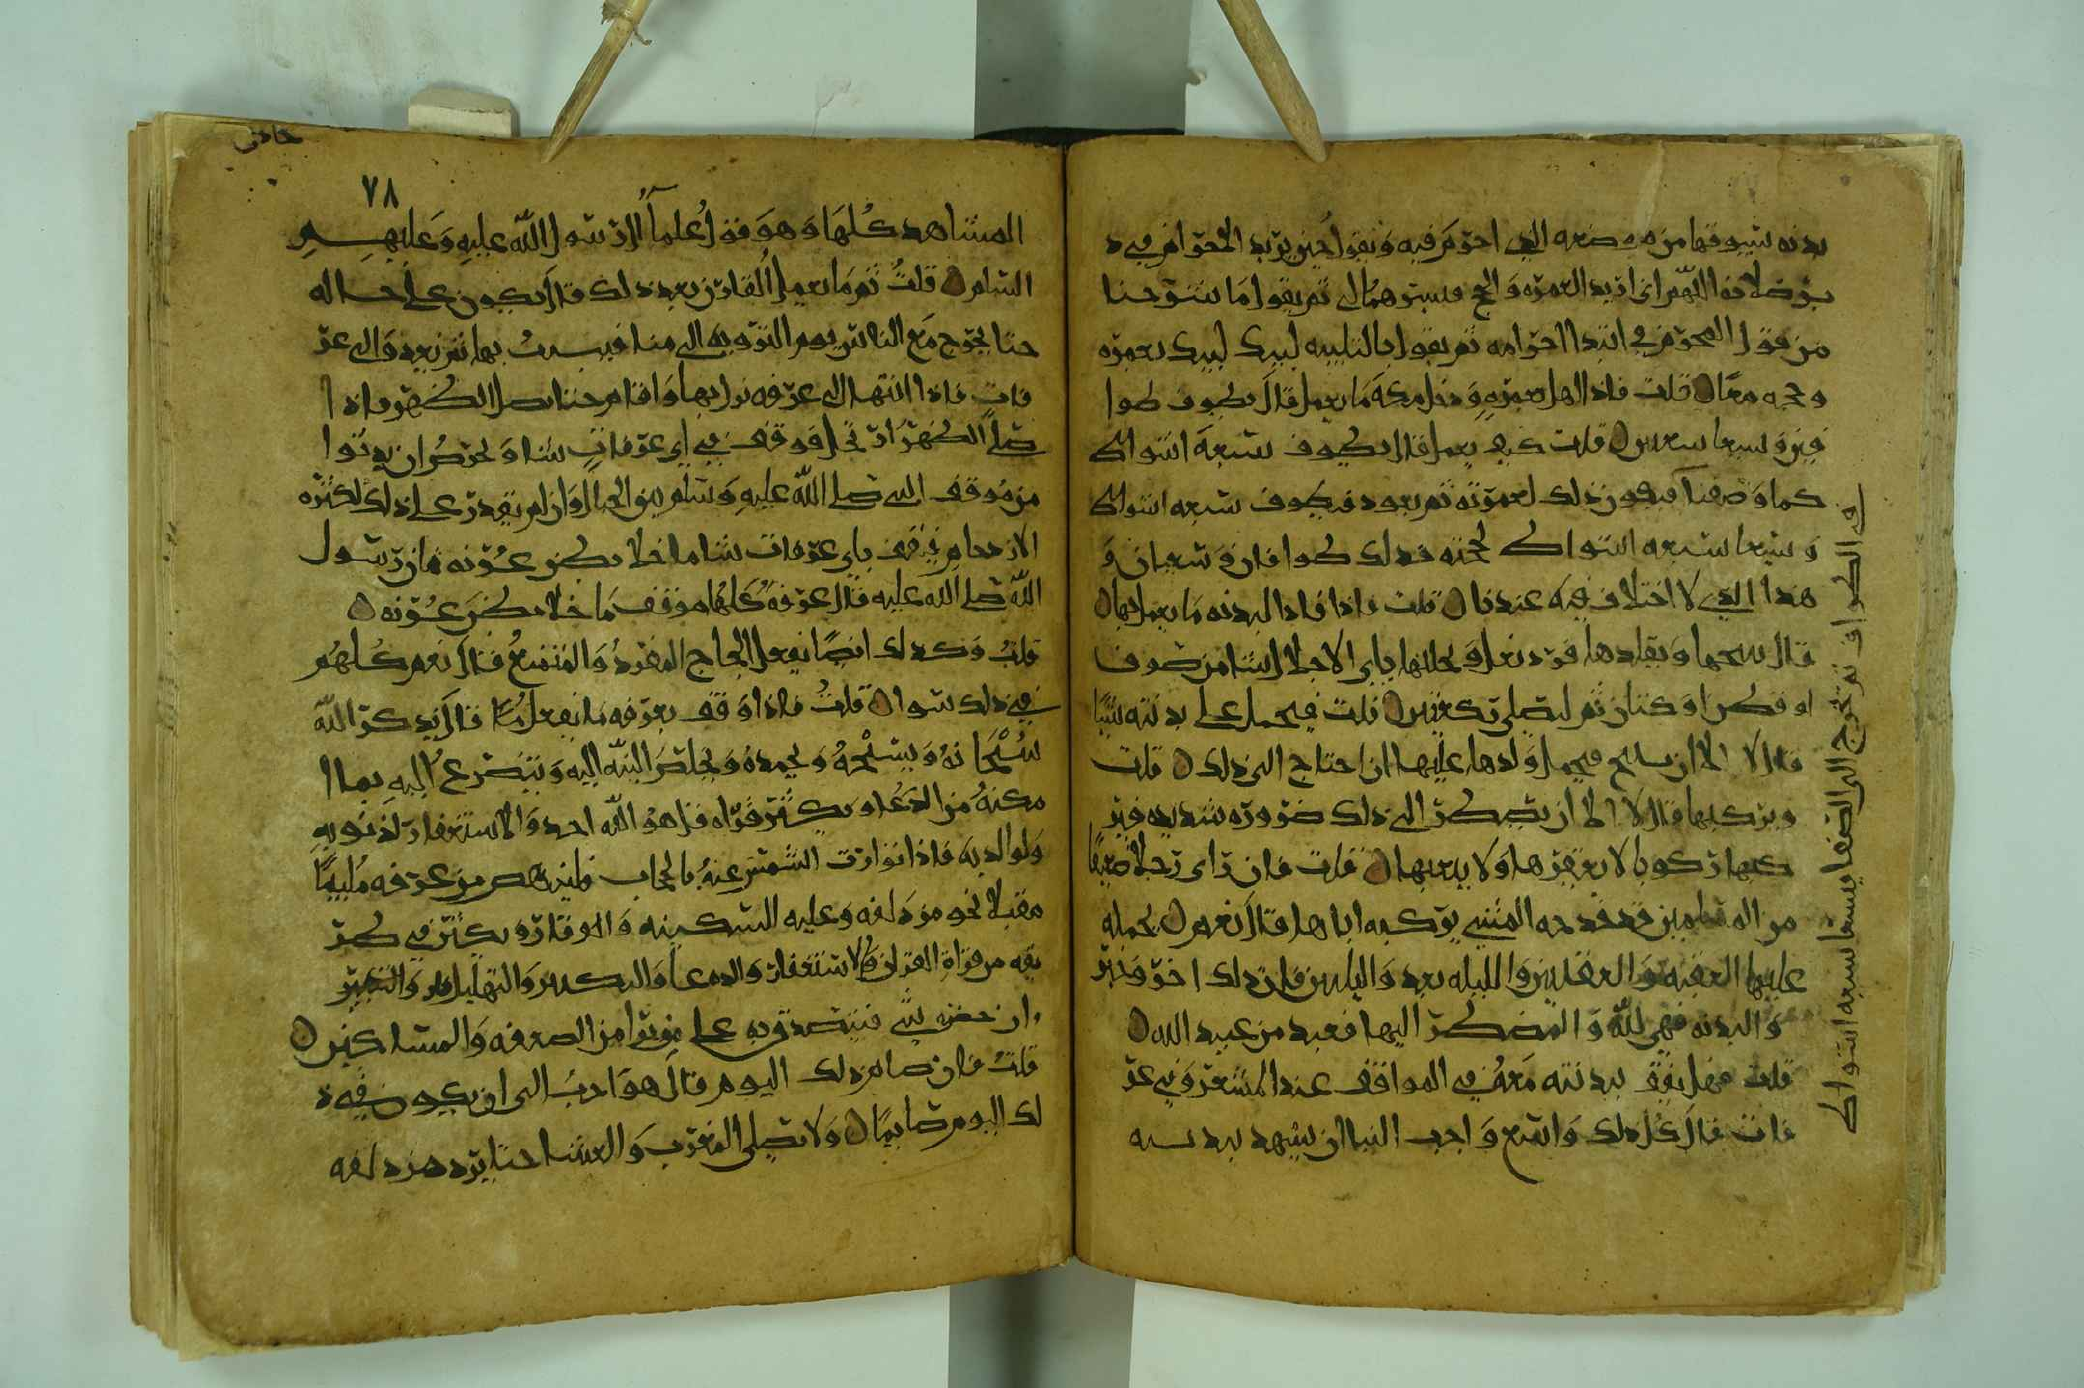 بدنه يسوقها من موضعه الذي احرم فيه ويقول حين يريد الاحرام في د
بر صلاته اللهم اني اريد العمره والحج فيسرهما لي ثم يقول ما شرحنا
من قول المحرم في ابتدا احرامه ثم يقول بالتلبيه لبيك لبيك بعمره
وحجه معا قلت فاذا اهل بعمره ودخل مكه ما يعمل قال يطوف طوا
فين ويسعا سعيين قلت كيف يعمل قال يطوف سبعه اشواط
كما وصفنا فيكون ذلك لعمرته ثم يعود فيطوف سبعه اشواط
ويسعا سبعه اشواط لحجته فذلك طوافان وسعيان و
هذا الذي لا اختلاف فيه عندنا قلت فاذا قاد البدنه ما يعمل بها
قال يشعرها ويقلدها فرد نعل ويجللها باي الاجلال شا من صوف
او قطن او كتان ثم ليصلي ركعتين قلت فيحمل على بدنته شيا
قال لا الا ان ينتج فيحمل ولدها عليها ان احتاج الى ذلك قلت
ويركبها قال لا الا ان يضطر الى ذلك ضروره شديده فير
كبها ركوبا لا يعقرها ولا يتعبها قلت فان راى رجلا ضعيفا
من المسلمين قد فدحه المشي يركبه اياها قال نعم يحمله
عليها العقبه والعقبتين والليله بعد والليلتين فان ذلك اجر وخير
والبدنه فهي لله والمضطر اليها فعبد من عبيد الله
قلت فهل يقف بدنته معه في المواقف عند المشعر وفي عر
فات قال كل ذلك واسع واحب الينا ان يشهد ببدنته
وف الطواف ثم يخرج الى الصفا يسعا سبعه اشواط
حاذى
٧٨
المشاهد كلها وهو قول علما ال رسول الله عليه وعليهم
السلم قلت ثم ما يعمل القارن بعد ذلك قال يكون على حاله
حتا يخرج مع الناس يوم الترويه الى منا فيبيت بها ثم يغدو الى عر
فات فاذا انتها الى عرفه نزل بها واقام حتا يصلي الظهر فاذا
صلى الظهر ارتحل فوقف في اي عرفات شا ويحرص ان يدنوا
من موقف النبي صلى الله عليه وسلم بين الجبال وان لم يقدر على ذلك لكثرة
الازدحام فيقف باي عرفات شا ما خلا بطن عرنه فان رسول
الله صلى الله عليه قال عرفه كلها موقف ما خلا بطن عرنه
قلت وكذلك ايضا يفعل الحاج المفرد والمتمتع قال نعم كلهم
في ذلك سوا قلت فاذا وقف بعرفه ما يفعل قال يذكر الله
سبحانه ويسبحه ويحمده ويخلص النيه اليه ويتضرع اليه بما ا
مكنه من الدعا ويكثر قراه قل هو الله احد والاستغفار لذنوبه
ولوالديه فاذا توارت الشمس عنه بالحجاب فلينهض من عرفه ملبيا
مقبلا نحو مزدلفه وعليه السكينه والوقار ويكثر في طر
يقه من قراة القران والاستغفار والدعا والتكبير والتهليل والتكبير
وان حضره شي فيتصدق به على من يرا من الضعفه والمساكين
قلت فان صام ذلك اليوم قال هو احب الي ان يكون في ذ
لك اليوم صايما ولا يصلي المغرب والعشا حتا يرد مزدلفه